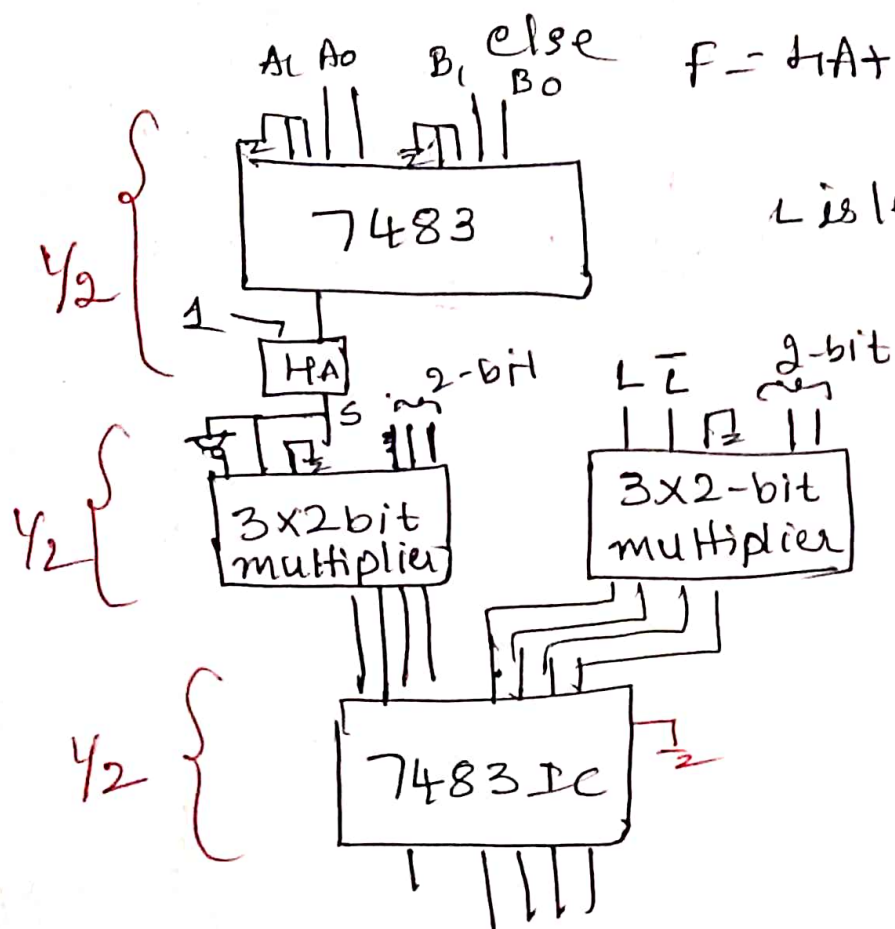 else
A1 A0 B1 B0 F = 4A+
7483
L is
1/2
1
HA
S
2-bit
L L̅
2-bit
3x2bit
multiplier
3x2-bit
multiplier
1/2
7483 IC
1/2